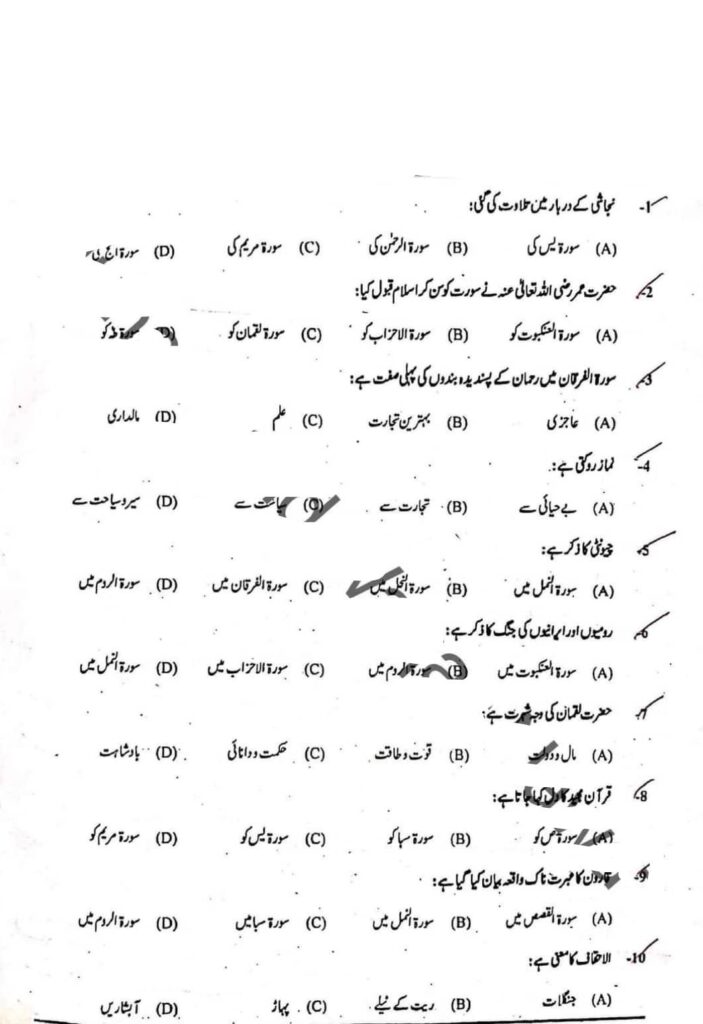 -1 نجاشی کے دربار میں تلاوت کی گئی:
(A) سورۃ یٰس کی (B) سورۃ الرحمٰن کی (C) سورۃ مریم کی (D) سورۃ
-2 حضرت عمر رضی اللہ تعالیٰ عنہ نے سورت کو سن کر اسلام قبول کیا:
(A) سورۃ العنکبوت کو (B) سورۃ الاحزاب کو (C) سورۃ لقمان کو (D) سورۃ طہٰ کو
-3 سورۃ الفرقان میں رحمان کے پسندیدہ بندوں کی پہلی صفت ہے:
(A) عاجزی (B) بہترین تجارت (C) علم (D) مالداری
-4 نماز روکتی ہے:
(A) بے حیائی سے (B) تجارت سے (C) سیاست سے (D) سیر و سیاحت سے
-5 چیونٹی کا ذکر ہے:
(A) سورۃ النمل میں (B) سورۃ النحل میں (C) سورۃ الفرقان میں (D) سورۃ الروم میں
-6 رومیوں اور ایرانیوں کی جنگ کا ذکر ہے:
(A) سورۃ العنکبوت میں (B) سورۃ الروم میں (C) سورۃ الاحزاب میں (D) سورۃ النمل میں
-7 حضرت لقمان کی وجہ شہرت ہے:
(A) مال و دولت (B) قوت و طاقت (C) حکمت و دانائی (D) بادشاہت
-8 قرآن مجید کا دل کہا جاتا ہے:
(A) سورۃ ص کو (B) سورۃ سبا کو (C) سورۃ یٰس کو (D) سورۃ مریم کو
-9 قارون کا عبرت ناک واقعہ بیان کیا گیا ہے:
(A) سورۃ القصص میں (B) سورۃ النمل میں (C) سورۃ سبا میں (D) سورۃ الروم میں
-10 الاحقاف کا معنی ہے:
(A) جنگلات (B) ریت کے ٹیلے (C) پہاڑ (D) آبشاریں